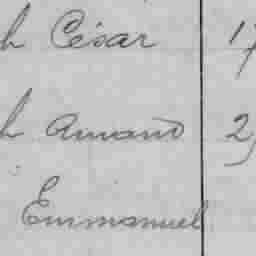 h César 17
h Amand 2
Emmanuel